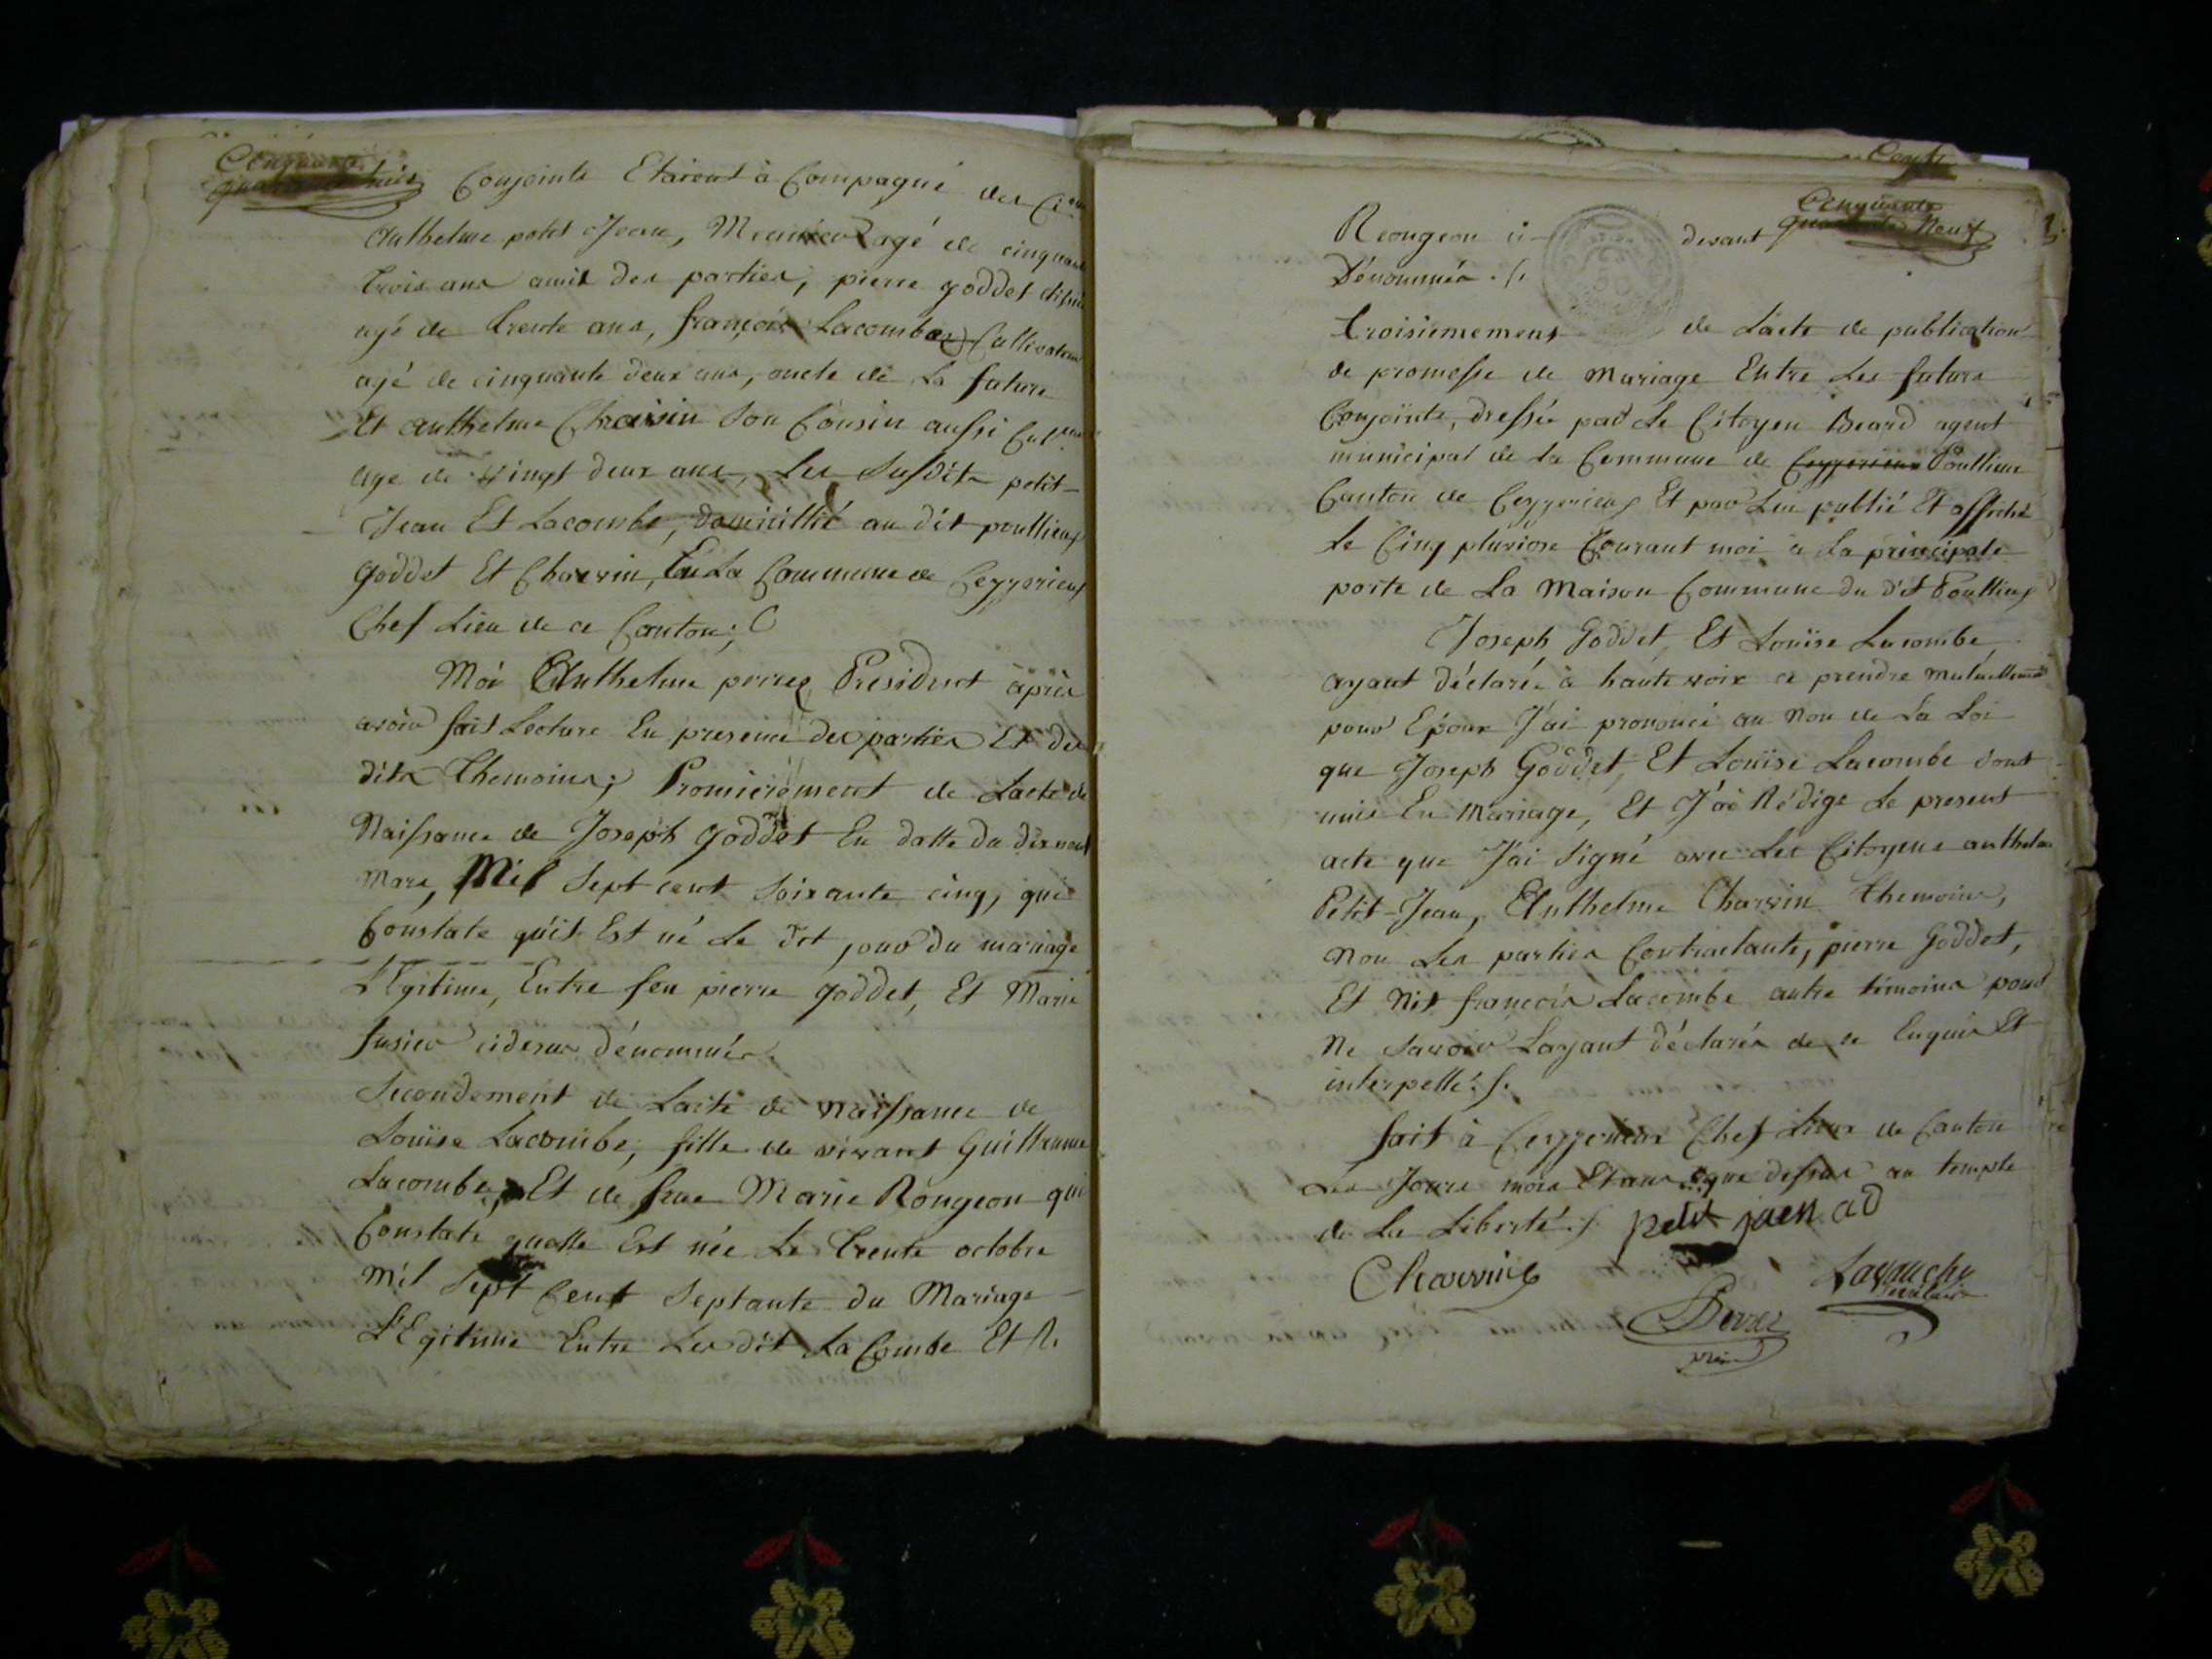 Cenquante
Conjoints Etairent à Compagné des Ci.ens
Anthelme petit Jean, Meunier agé de cinquante
trois ans amis des parties, pierre goddet
agé de trente ans, françois Lacombe Cultivateur
agé de cinquante deux ans, oncle de La future
Et anthelme Charvin Son Cousin aussi Cul.teur
age de vingt deux ans, Les Susdits petit-
Jean Et Lacombe, domicillié au dit poullieux
goddet Et Charvin, En La Commune de Ceyzerieux
Chef Lieu de ce Canton;
Moi Anthelme perret Président après
avoir fait Lecture En presence des parties Et des
dits themoins; Promierement de Lacte de
Naissance de Joseph goddet En datte du dix neuf
Mars, Mil Sept cent Soixante cinq, qui
Constate qu'il Est né Le dit jour du mariage
L'Egitime, Entre feu pierre goddet, Et Marie
Jusier cidesus dénommés.
Secondement de Lacte de Naissance de
Louise Lacombe, fille de vivant Guillaume
Lacombe, Et de feue Marie Rongeon qui
Constate quelle Est née Le trente octobre
Mil Sept Cent Septante du Mariage
L'Egitime Entre Les dit La Combe Et R.
Cenquante
Neuf
Reongeon ci- devant
Dénommés ./.
troisiemement de Lacte de publication
de promesse de Mariage Entre Les futurs
Conjoints, dressée par Le Citoyen Beard agent
municipal de la Commune de Ceyzerieux Poullieux
Canton de Ceyzerieux Et par Lui publié Et affiché
le Cinq pluviose Courant moi à la principale
porte de La Maison Commune du dit Poullieux
Joseph Goddet Et Louïse Lacombe
ayant déclarée à haute voix ce prendre mutuellement
pour Epoux J'ai prononcé au Non de La Loi
que Joseph Goddet, Et Louïse Lacombe sont
unie En Mariage, Et J'ai Rédige Le present
acte que J'ai Signé avec Les Citoyens anthelme
Petit-Jean, Anthelme Charvin themoins,
Non Les parties Contractante, pierre Goddet,
Et Nit francois Lacombe autre témoins pour
Ne Savoir Layant déclarés de ce Enquis Et
interpellé. /.
fait à Ceyzerieux Chef Lieux de Canton
Les Jours mois Et ans que dessus au temple
de La Liberté. /. petit jaen ad
Charvin
Perret
prés